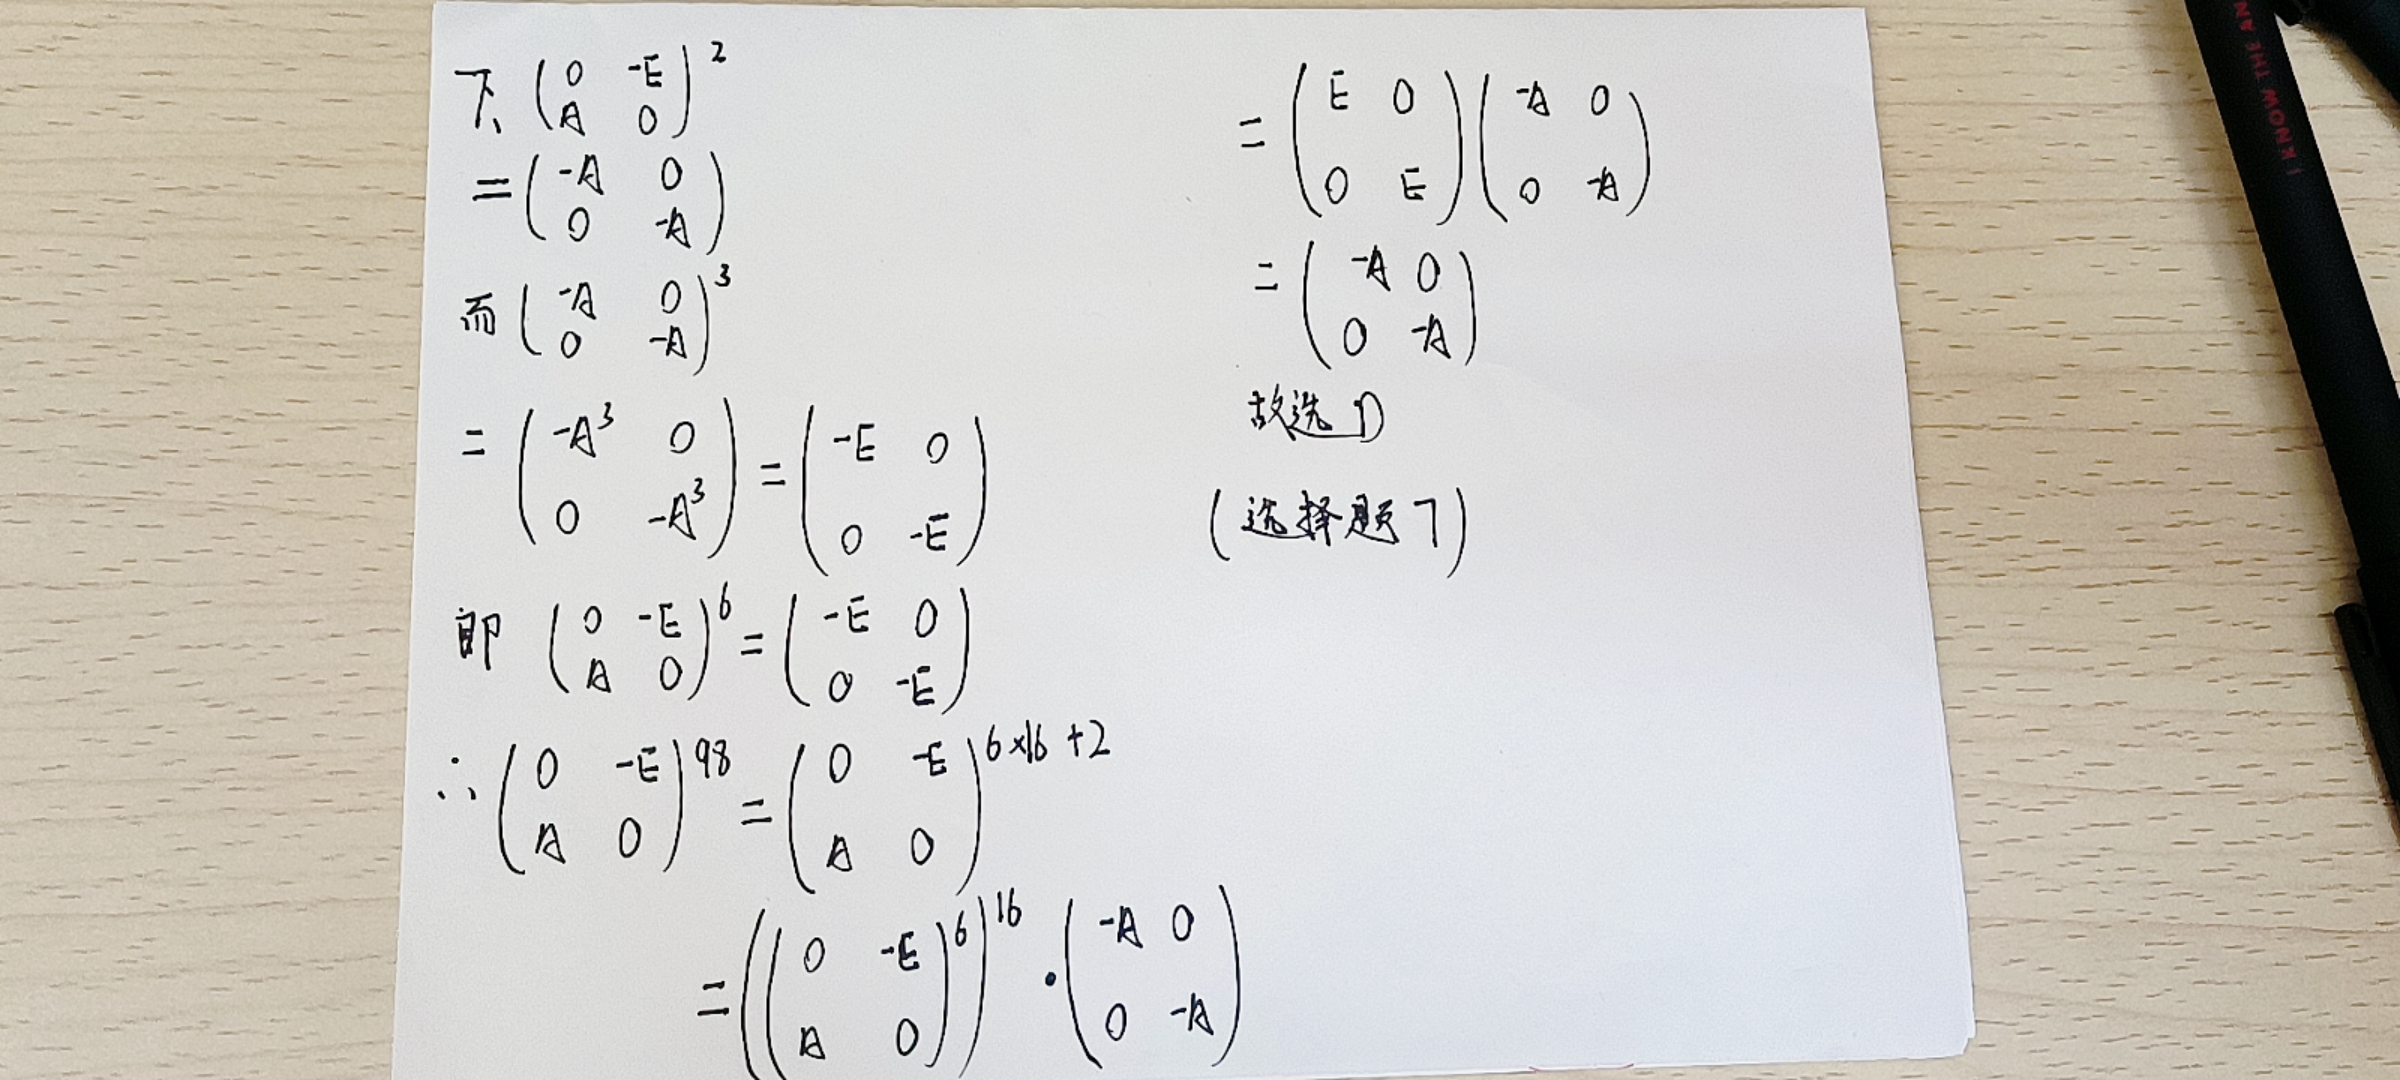 7、(0 -E
A 0)^2
=(-A 0
0 -A)
而(-A 0
0 -A)^3
=(-A^3 0
0 -A^3)=(-E 0
0 -E)
即 (0 -E
A 0)^6=(-E 0
0 -E)
∴(0 -E
A 0)^98=(0 -E
A 0)^6×16+2
=((0 -E
A 0)^6)^16·(-A 0
0 -A)
=(E 0
0 E)(-A 0
0 -A)
=(-A 0
0 -A)
故选D
(选择题7)
I KNOW THE AN